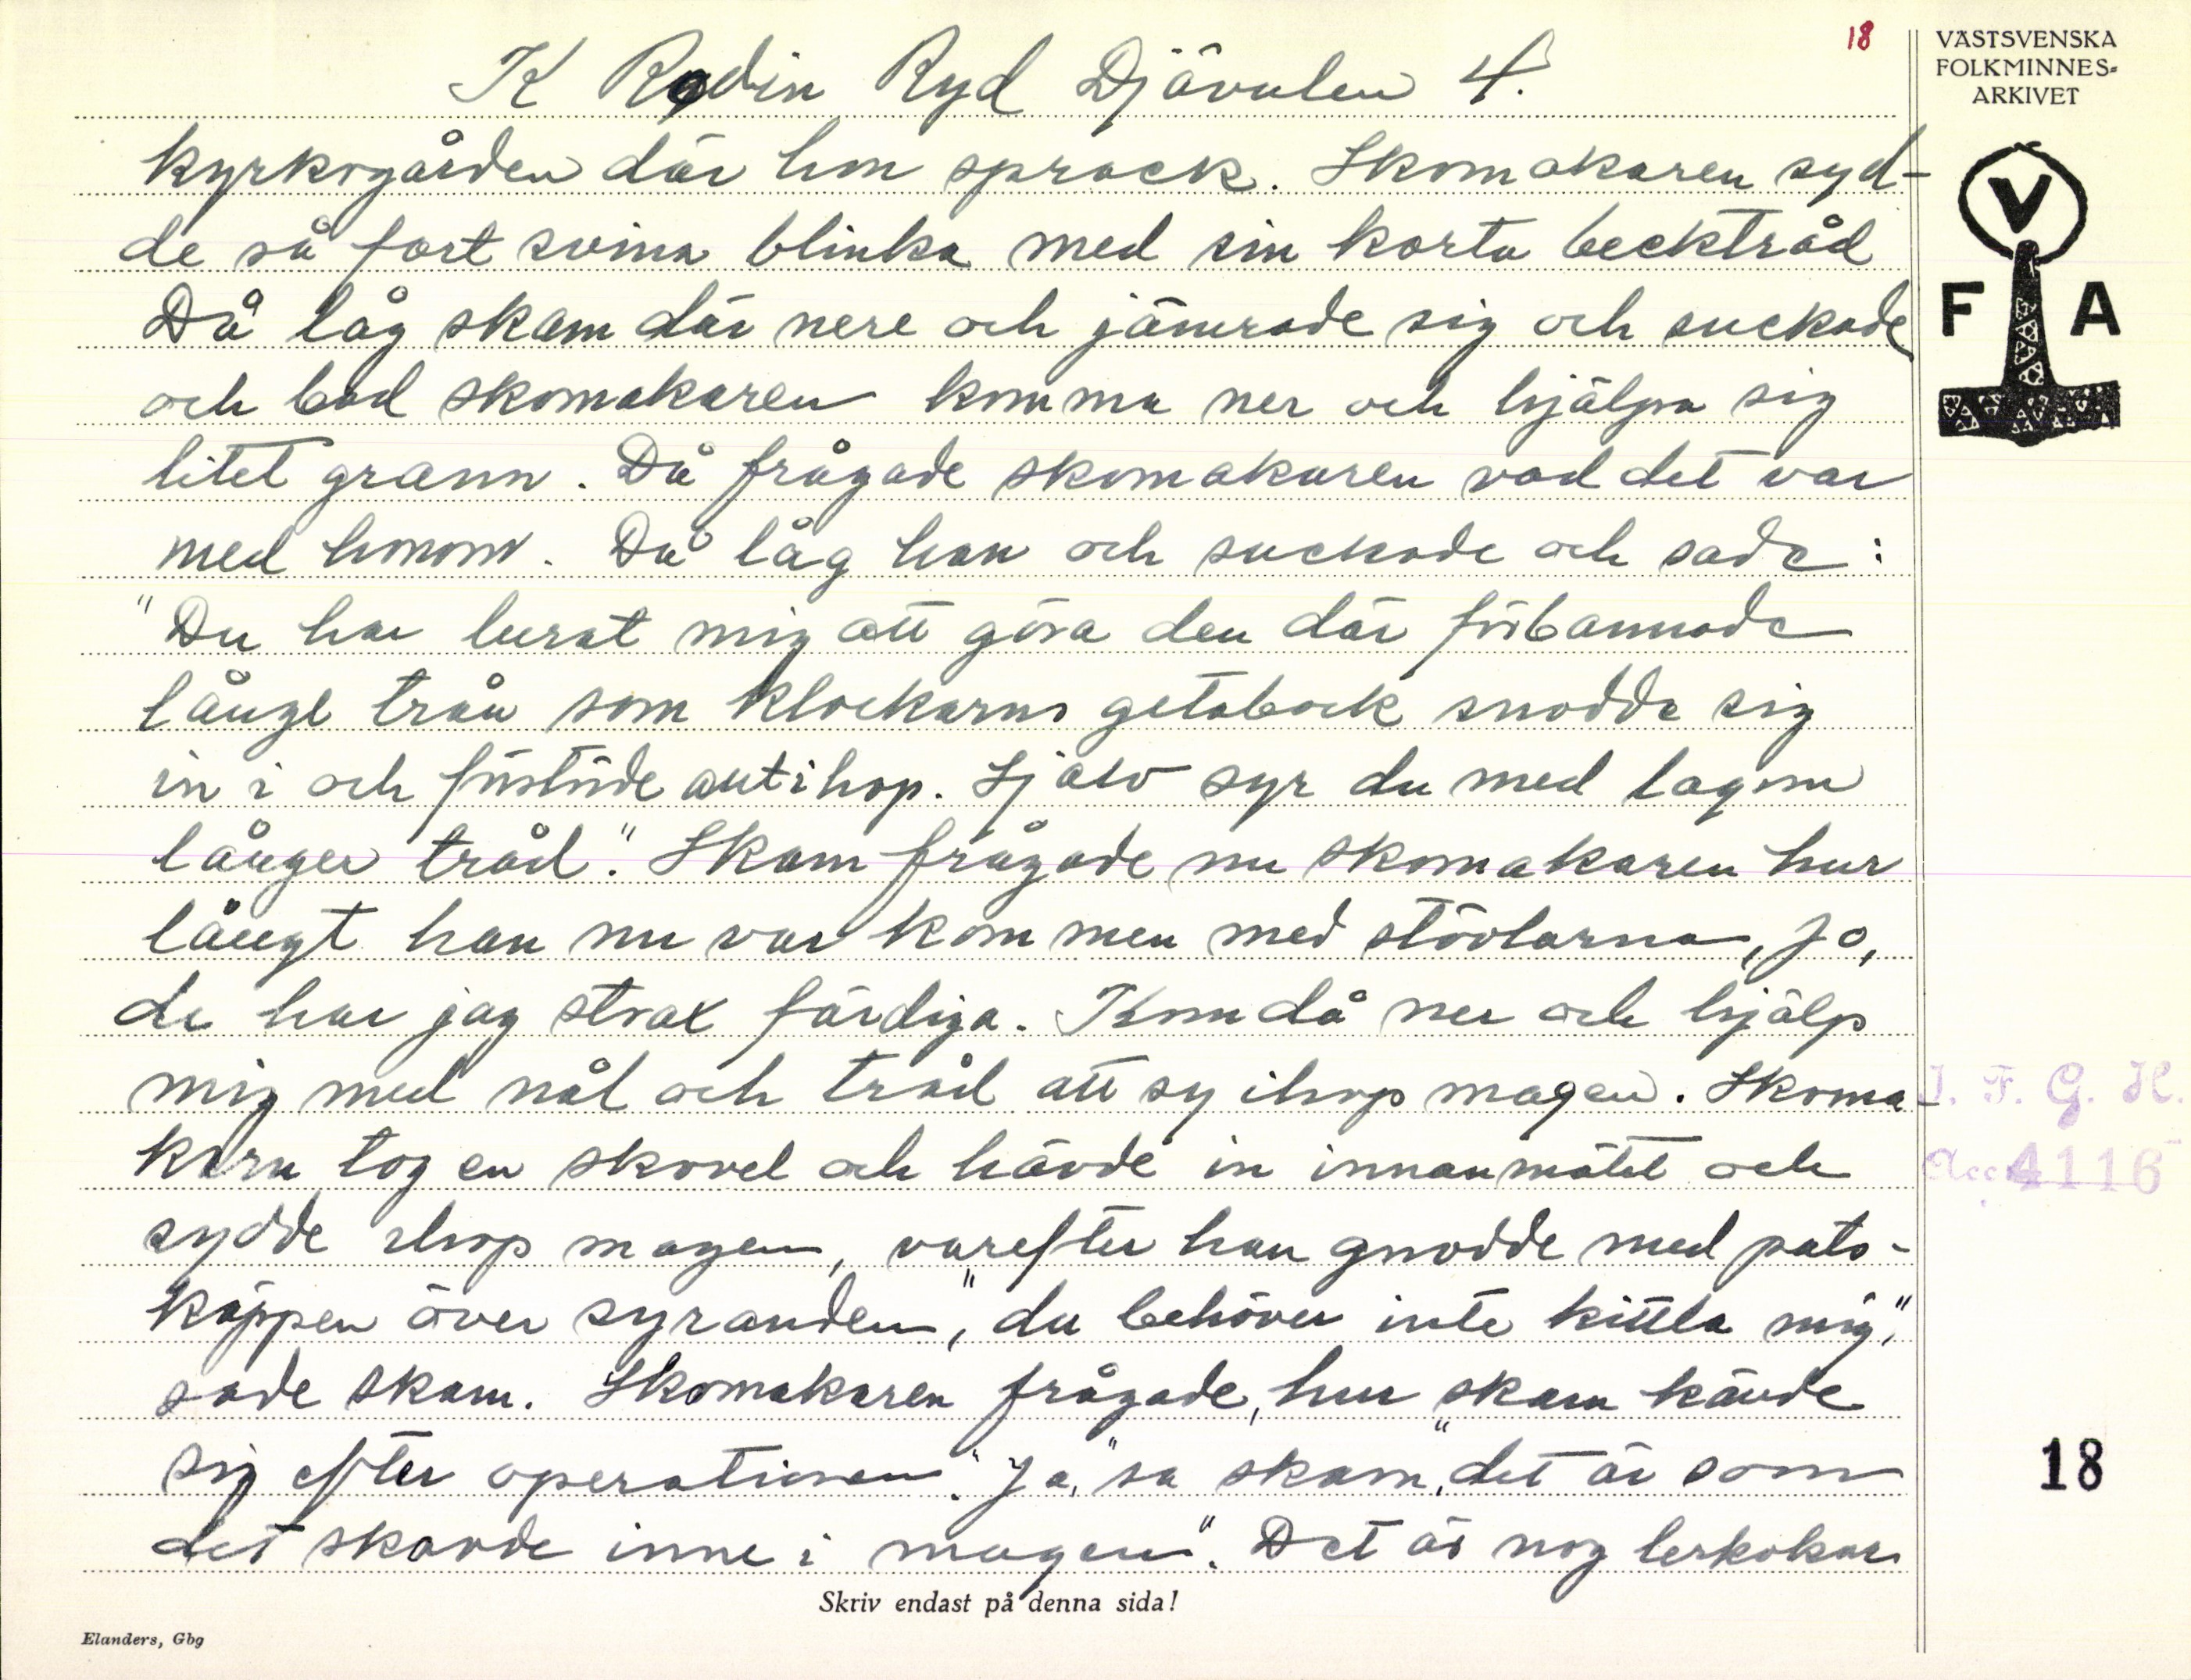 18
VÄSTSVENSKA
FOLKMINNES-
ARKIVET
V
F A
K Rodin Ryd Djävulen 4.
kyrkogården där hon sprack. Skomakaren syd-
de så fort svina blinka med sin korta becktråd
Då låg skam där nere och jämrade sig och suckade
och bad skomakaren komma ner och hjälpa sig
litet grann. Då frågade skomakaren vad det var
med honom. Då låg han och suckade och sade:
"Du har lurat mig att göra den där förbannade
långe trån som klockarns getabock snodde sig
in i och förstörde alltihop. Själv syr du med lagom
långer tråd." Skam frågade nu skomakaren hur
långt han nu var kommen med stövlarna, jo,
de har jag strax färdiga. Kom då ner och hjälp
mig med nål och tråd att sy ihop magen. Skoma-
karn tog en skovel och hävde in innanmätet och
sydde ihop magen, varefter han gnodde med pata-
käppen över syranden, "du behöver inte kittla mig,"
sade skam. Skomakaren frågade, hur skam kände
sig efter operationen. "Ja," sa skam, "det är som
det skavde inne i magen". Det är nog lerkokar
I. F. G. H.
Acc 4116
18
Skriv endast på denna sida!
Elanders, Gbg